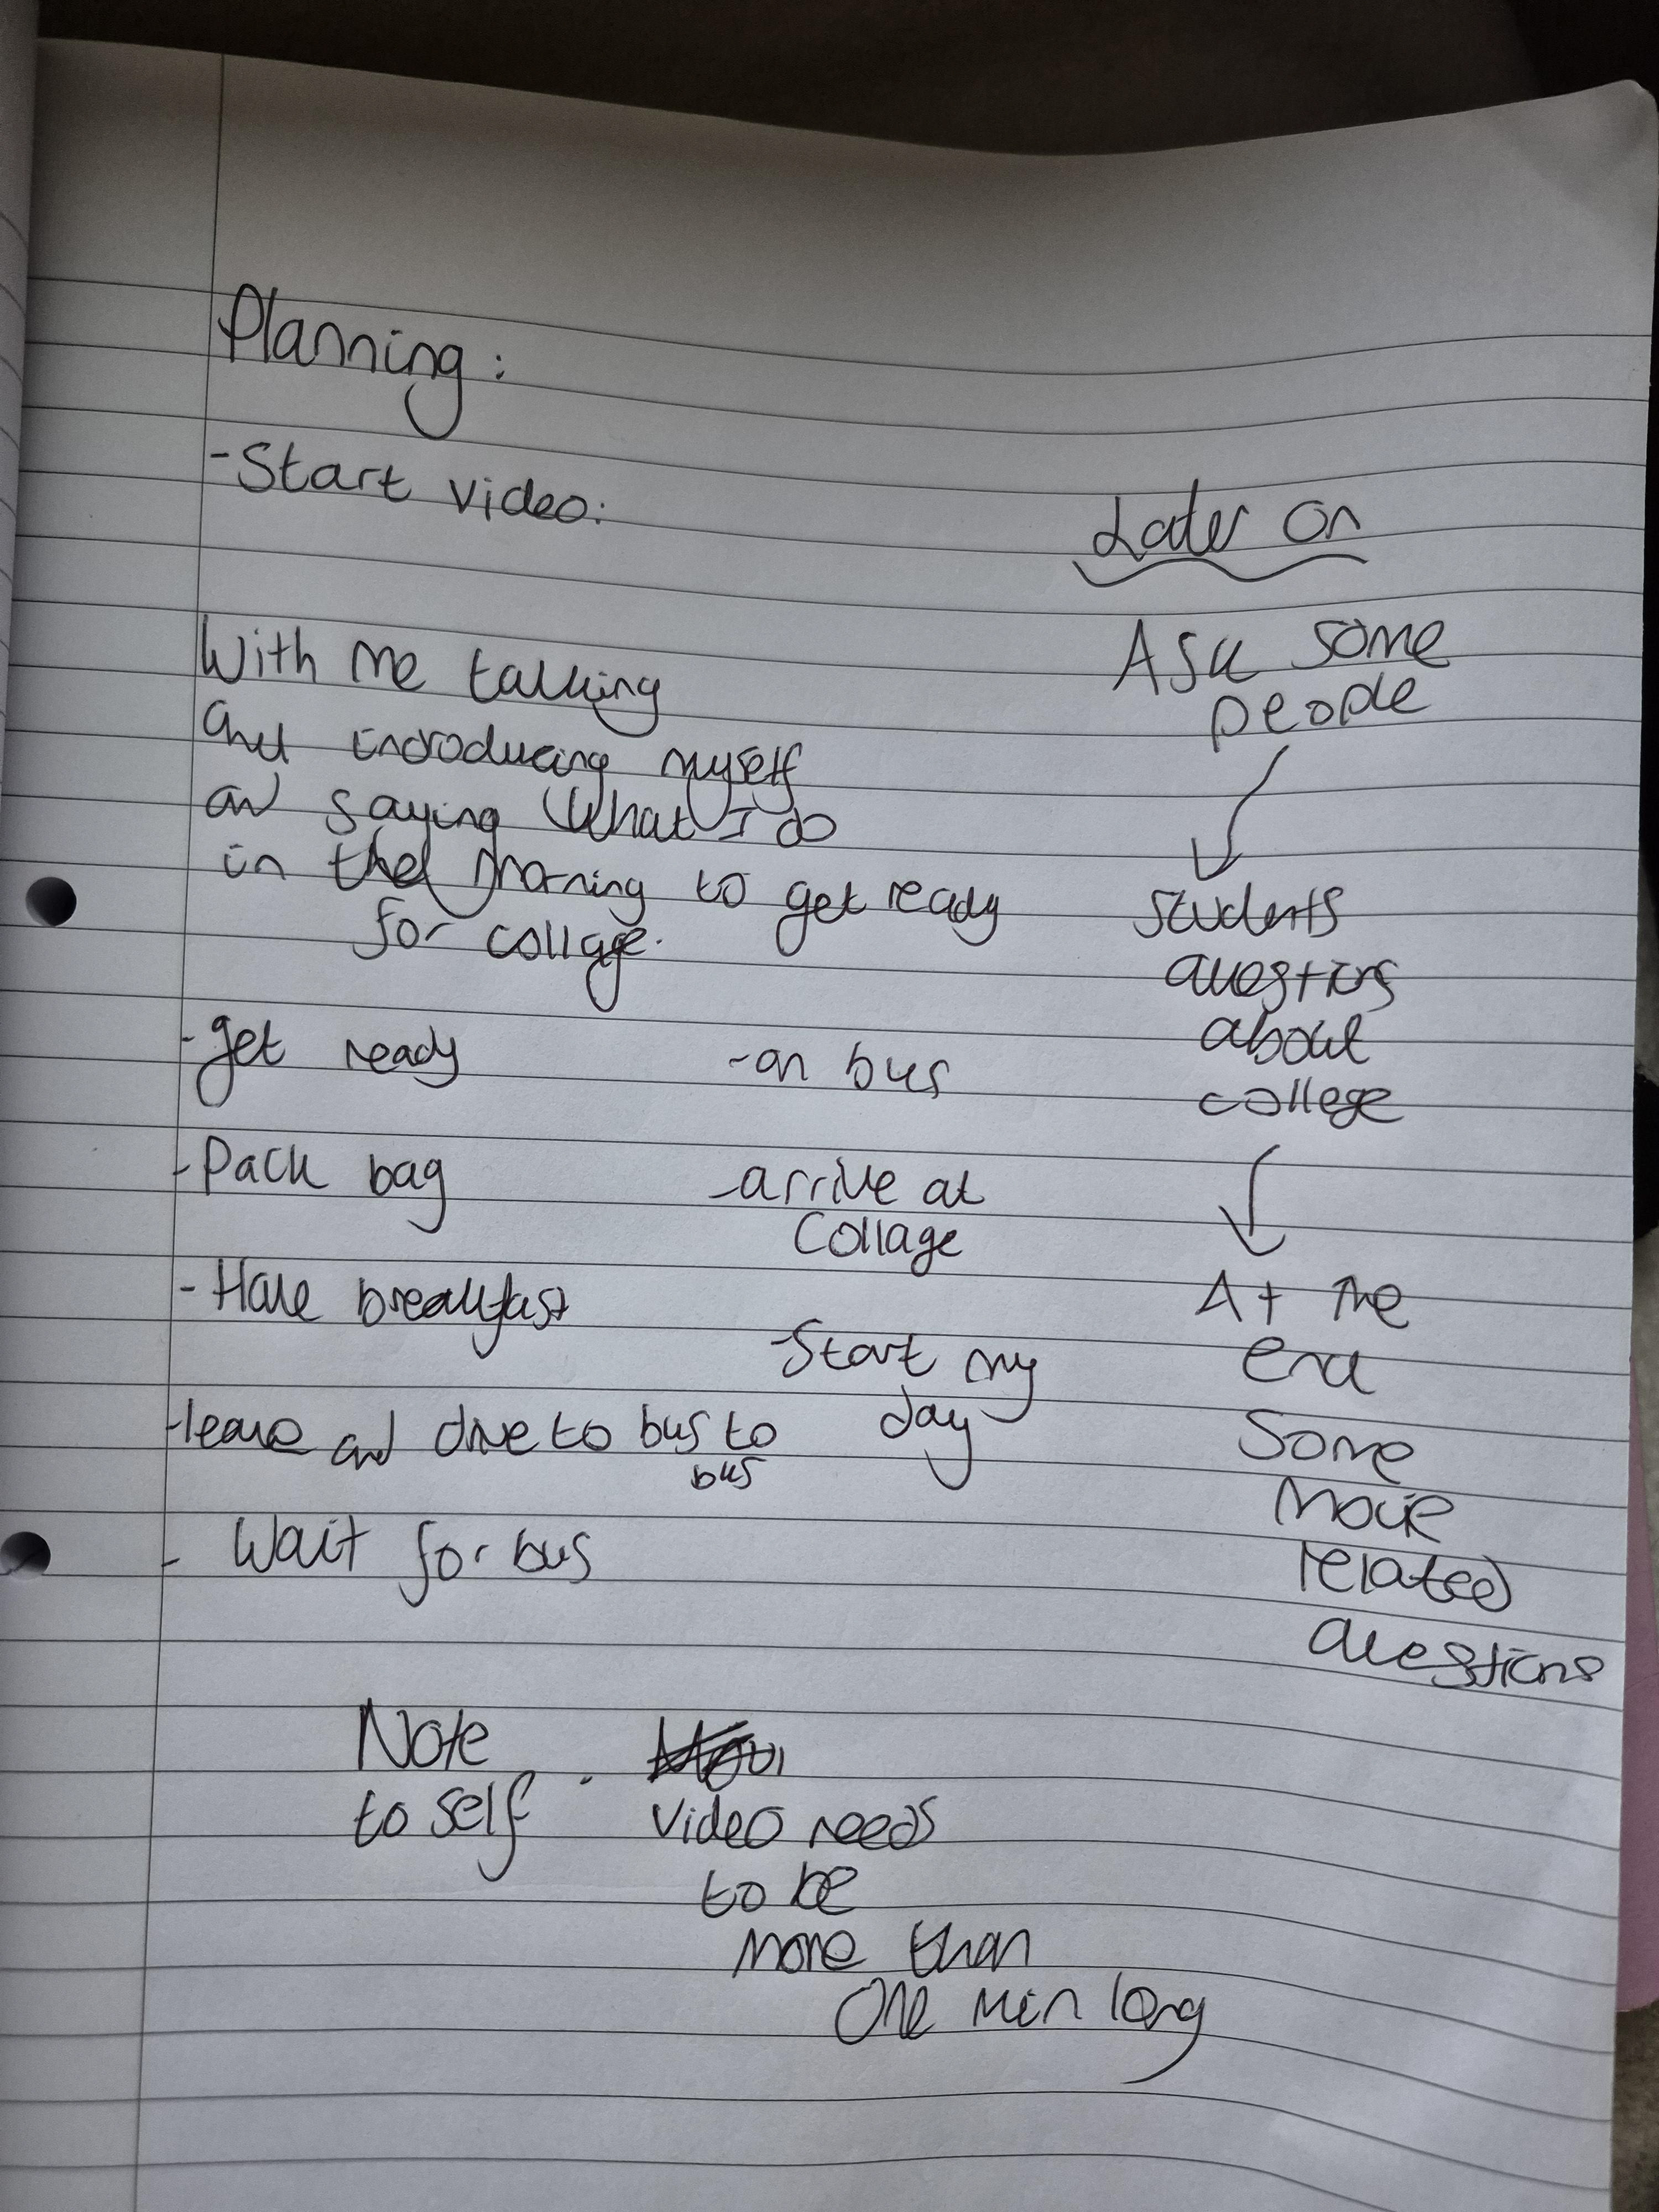 Planning:
-Start video:
With me talking
and introducing myself
and saying what I do
in the morning to get ready
for collage.
-get ready
-Pack bag
-Have breakfast
-leave and drive to bus to
bus
- Wait for bus
-on bus
-arrive at
Collage
-Start my
day
Later on
Ask some
people
students
questions
about
college
At the
end
Some
Movie
related
questions
Note
to self .
video needs
to be
more than
one min long